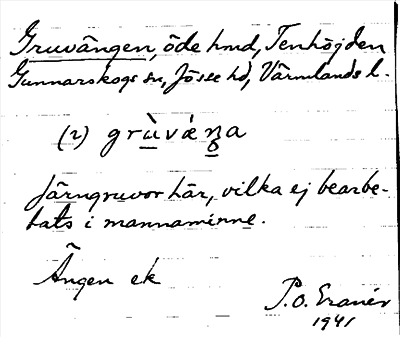 Gruvängen, öde hmd, Tenhöjden
Gunnarskogs sn, Jösse hd, Värmlands l.
(2) grùvǽŋa
Järngruvor här, vilka ej bearbe-
tats i mannaminne.
Ängen ek
P.O. Eranér
1941